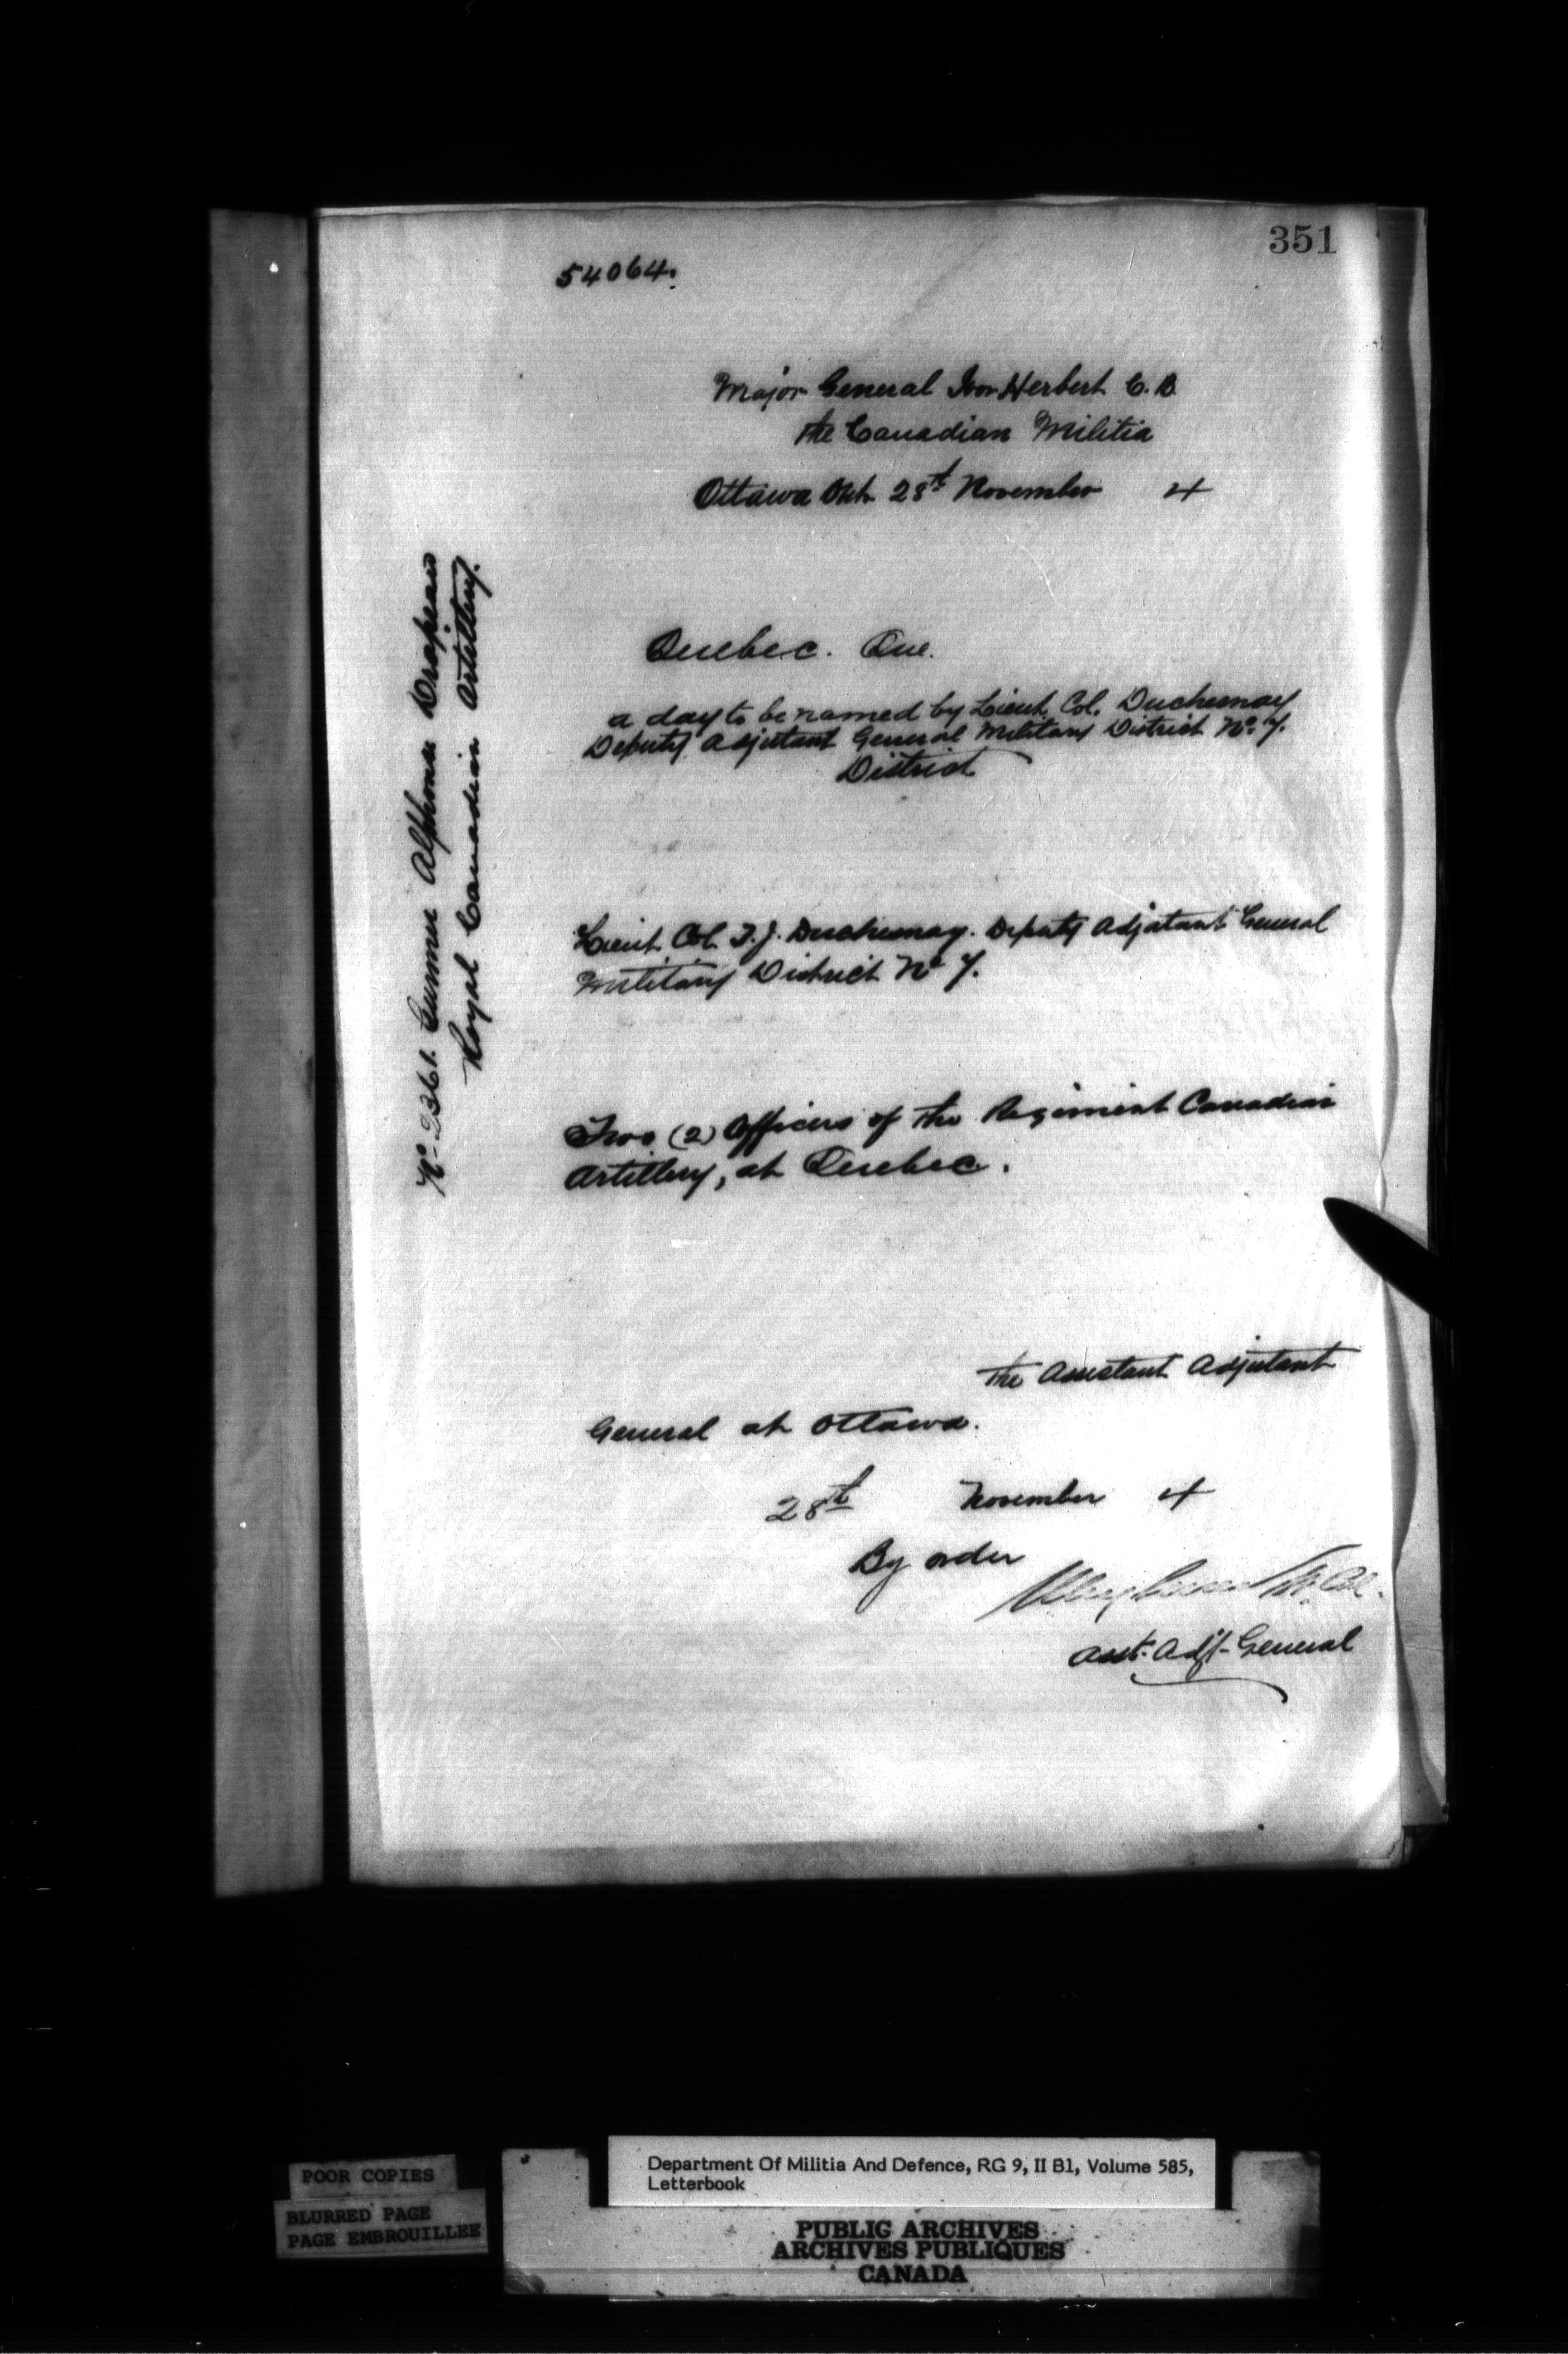 351
54064.
Major General Ivor Herbert C.B.
the Canadian Militia
Ottawa Ont. 28th November 4
Quebec. Que.
a day to be named by Lieut. Col. Duchesnay
Deputy Adjutant General Military District No. 7.
District
Lieut Col T.J. Duchesnay. Deputy Adjutant General
Military District No 7.
Two (2) Officers of the Regiment Canadian
Artillery, at Quebec.
the Assistant Adjutant
General at Ottawa.
28th November 4
By order
Asst. Adjt. General
No. 2361. Gunner Alphonse Drapeau
Royal Canadian Artillery.
POOR COPIES
BLURRED PAGE
PAGE EMBROUILLEE
Department Of Militia And Defence, RG 9, II B1, Volume 585,
Letterbook
PUBLIC ARCHIVES
ARCHIVES PUBLIQUES
CANADA